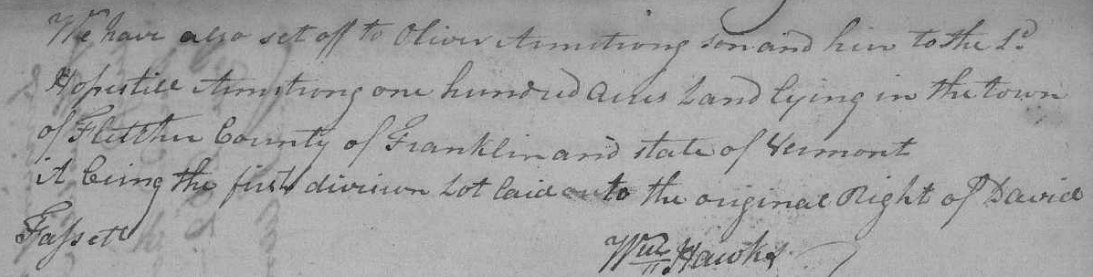 We have also set off to Oliver Armstrong son and heir to the Sd
Hopestill Armstrong one hundred acres Land lying in the town
of Fletcher County of Franklin and state of Vermont
it being the first division Lot laid out to the original Right of David
Fassett
Wm Hawkes